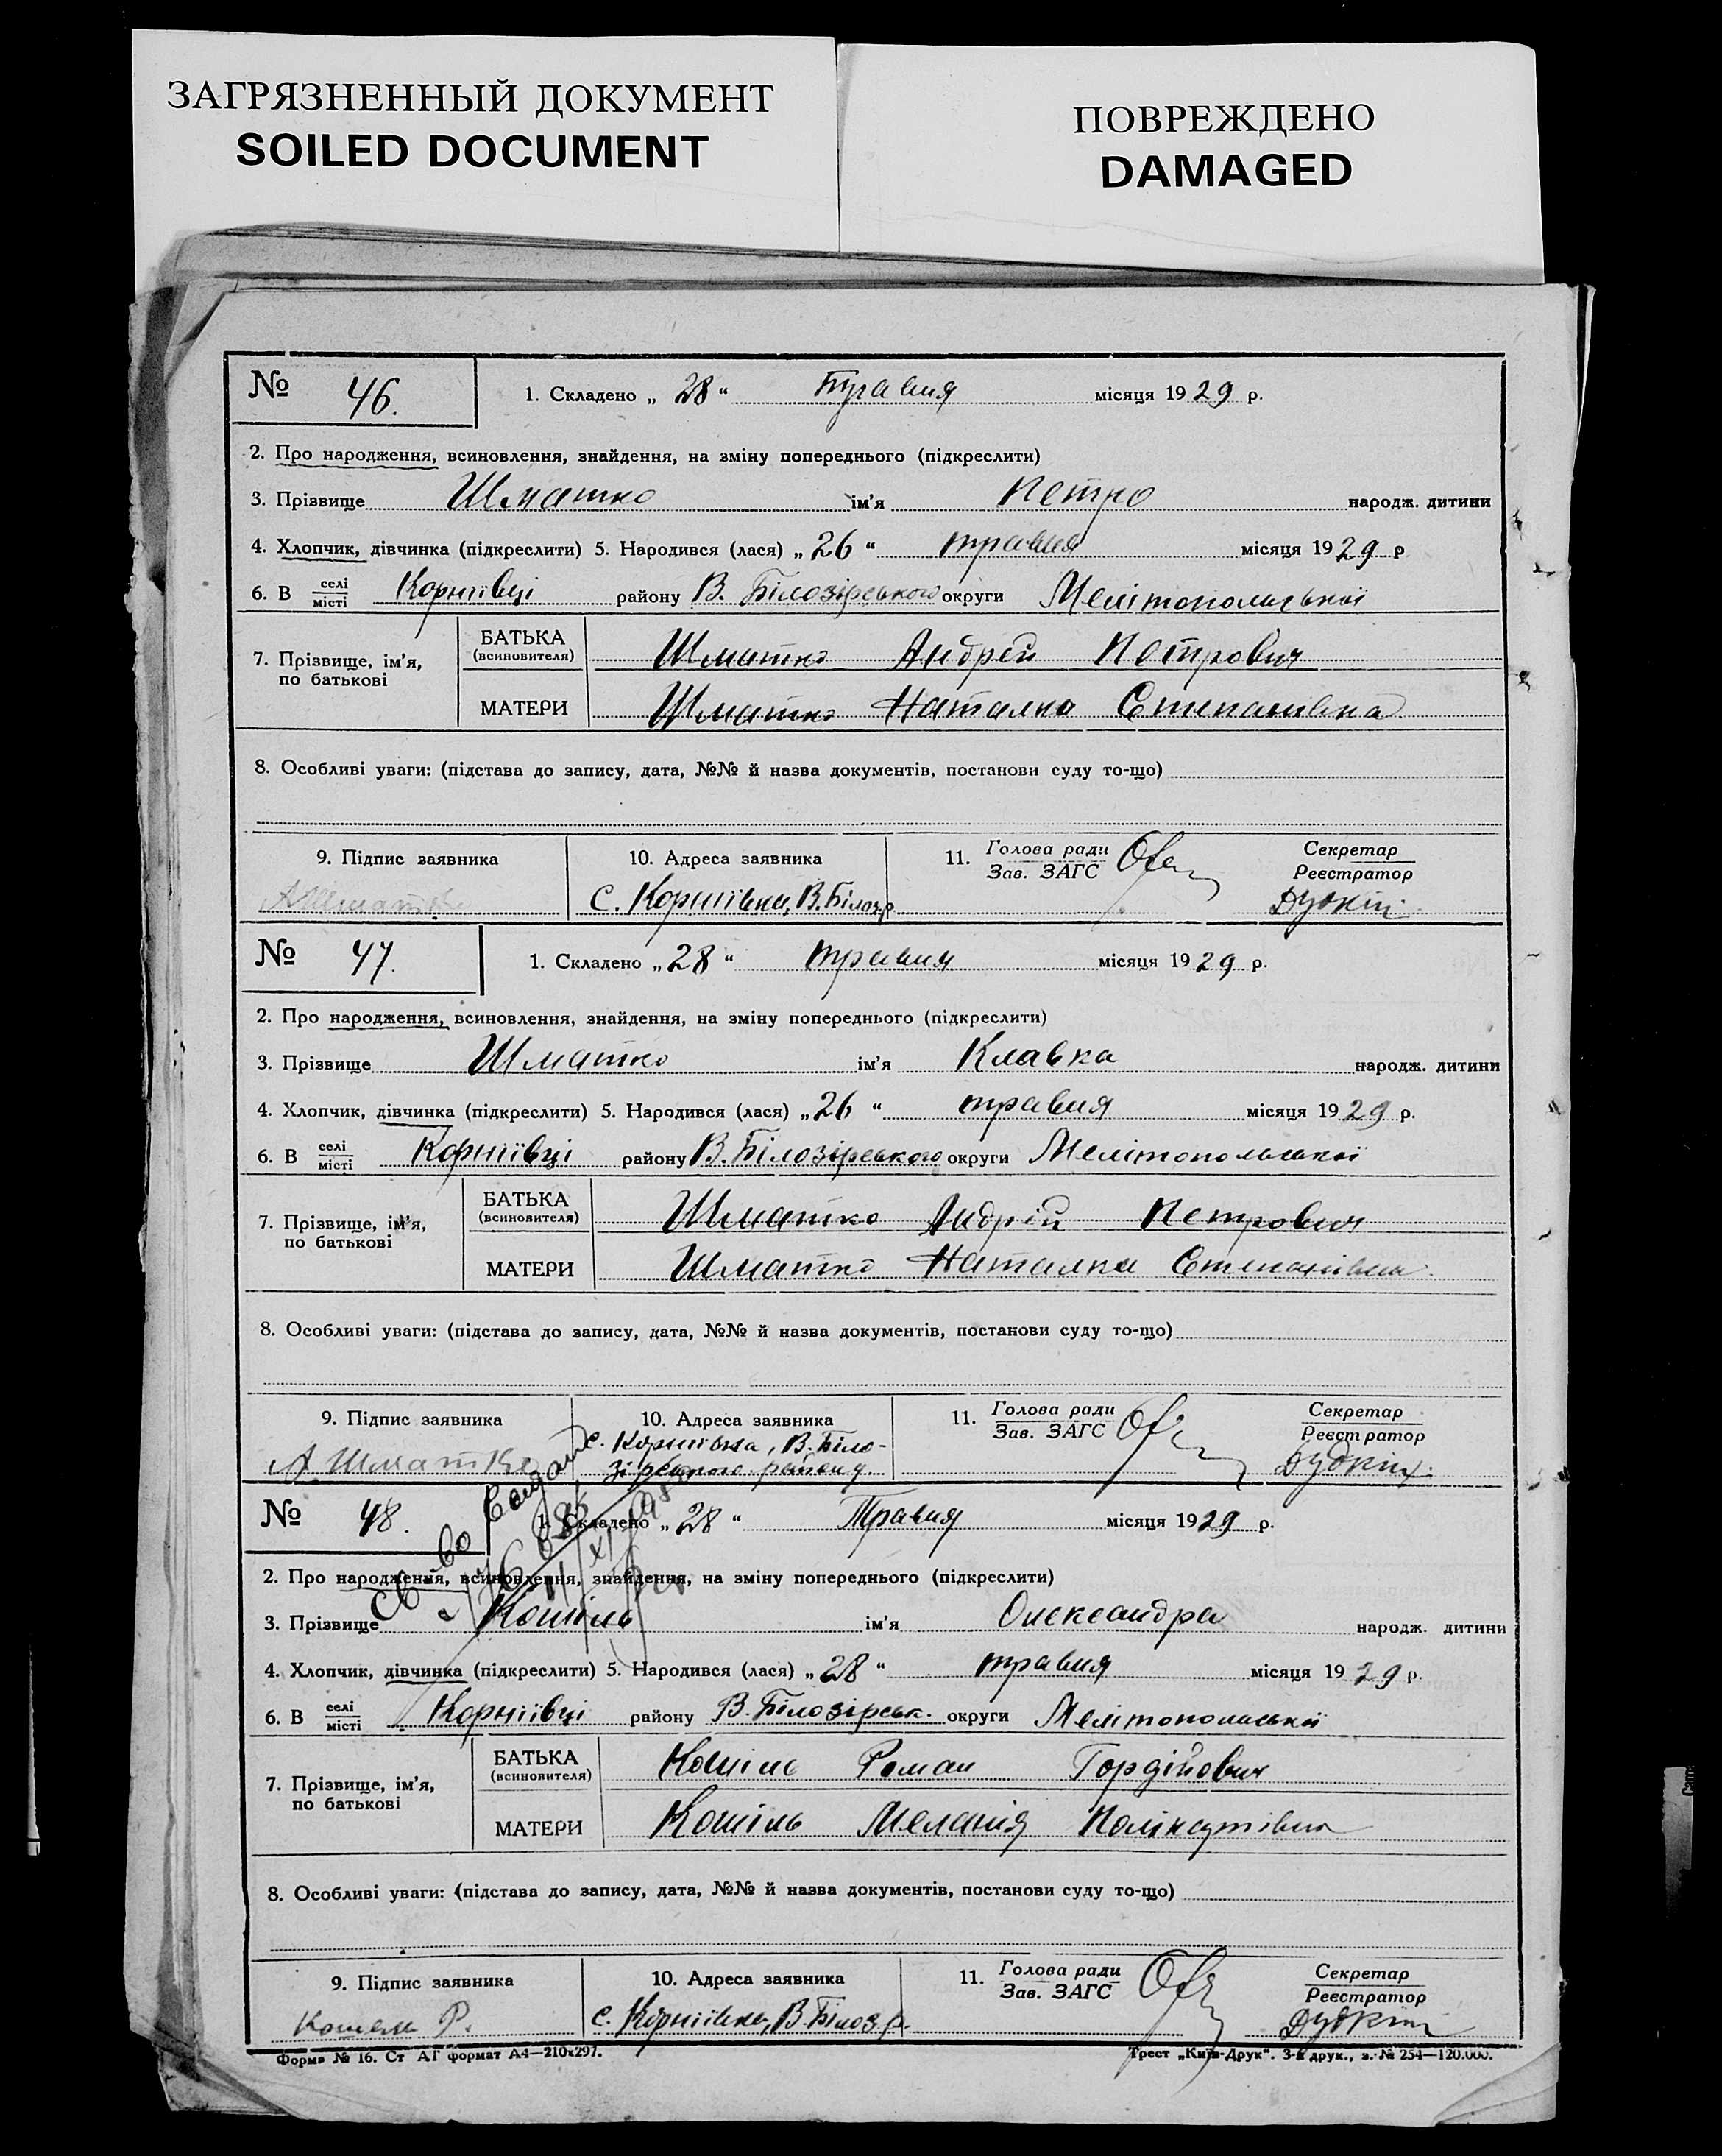 ЗАГРЯЗНЕННЫЙ ДОКУМЕНТ
SOILED DOCUMENT
ПОВРЕЖДЕНО
DAMAGED
№ 46. 1. Складено „ 28 “ Травня місяця 1929 р.
2. Про народження, всиновлення, знайдення, на зміну попереднього (підкреслити)
3. Прізвище Шматко ім'я Петро народж. дитини
4. Хлопчик, дівчинка (підкреслити) 5. Народився (лася) „ 26 “ травня місяця 1929 р
6. В селі місті Корніївці району В. Білозірського округи Мелітопольської
7. Прізвище, ім'я, по батькові
БАТЬКА (всиновителя) Шматко Андрей Петрович
МАТЕРИ Шматко Наталка Степанівна
8. Особливі уваги: (підстава до запису, дата, №№ й назва документів, постанови суду то-що)
9. Підпис заявника 10. Адреса заявника 11. Голова ради Зав. ЗАГС Секретар Реєстратор
А Шматко с. Корніївка, В. Білозр. Дудкін
№ 47. 1. Складено „ 28 “ травня місяця 1929 р.
2. Про народження, всиновлення, знайдення, на зміну попереднього (підкреслити)
3. Прізвище Шматко ім'я Клавка народж. дитини
4. Хлопчик, дівчинка (підкреслити) 5. Народився (лася) „ 26 “ травня місяця 1929 р.
6. В селі місті Корніївці району В. Білозірського округи Мелітопольської
7. Прізвище, ім'я, по батькові
БАТЬКА (всиновителя) Шматко Андрій Петрович
МАТЕРИ Шматко Наталка Степанівна
8. Особливі уваги: (підстава до запису, дата, №№ й назва документів, постанови суду то-що)
9. Підпис заявника 10. Адреса заявника 11. Голова ради Зав. ЗАГС Секретар Реєстратор
А. Шматко с. Корніївка, В. Біло-
зірського району Дудкін
№ 48. 1. Складено „ 28 “ Травня місяця 1929 р.
2. Про народження, всиновлення, знайдення, на зміну попереднього (підкреслити)
3. Прізвище Кошіль ім'я Олександра народж. дитини
4. Хлопчик, дівчинка (підкреслити) 5. Народився (лася) „ 28 “ травня місяця 1929 р.
6. В селі місті Корніївці району В. Білозірськ. округи Мелітопольської
7. Прізвище, ім'я, по батькові
БАТЬКА (всиновителя) Кошіль Роман Гордійович
МАТЕРИ Кошіль Меланія Полікутівна
8. Особливі уваги: (підстава до запису, дата, №№ й назва документів, постанови суду то-що)
9. Підпис заявника 10. Адреса заявника 11. Голова ради Зав. ЗАГС Секретар Реєстратор
Кошель Р. с. Корніївка, В. Білоз. р. Дудкін
Форма № 16. Ст АГ формат А4—210х297. Трест „Київ-Друк“. 3-я друк., з. № 254—120.000.